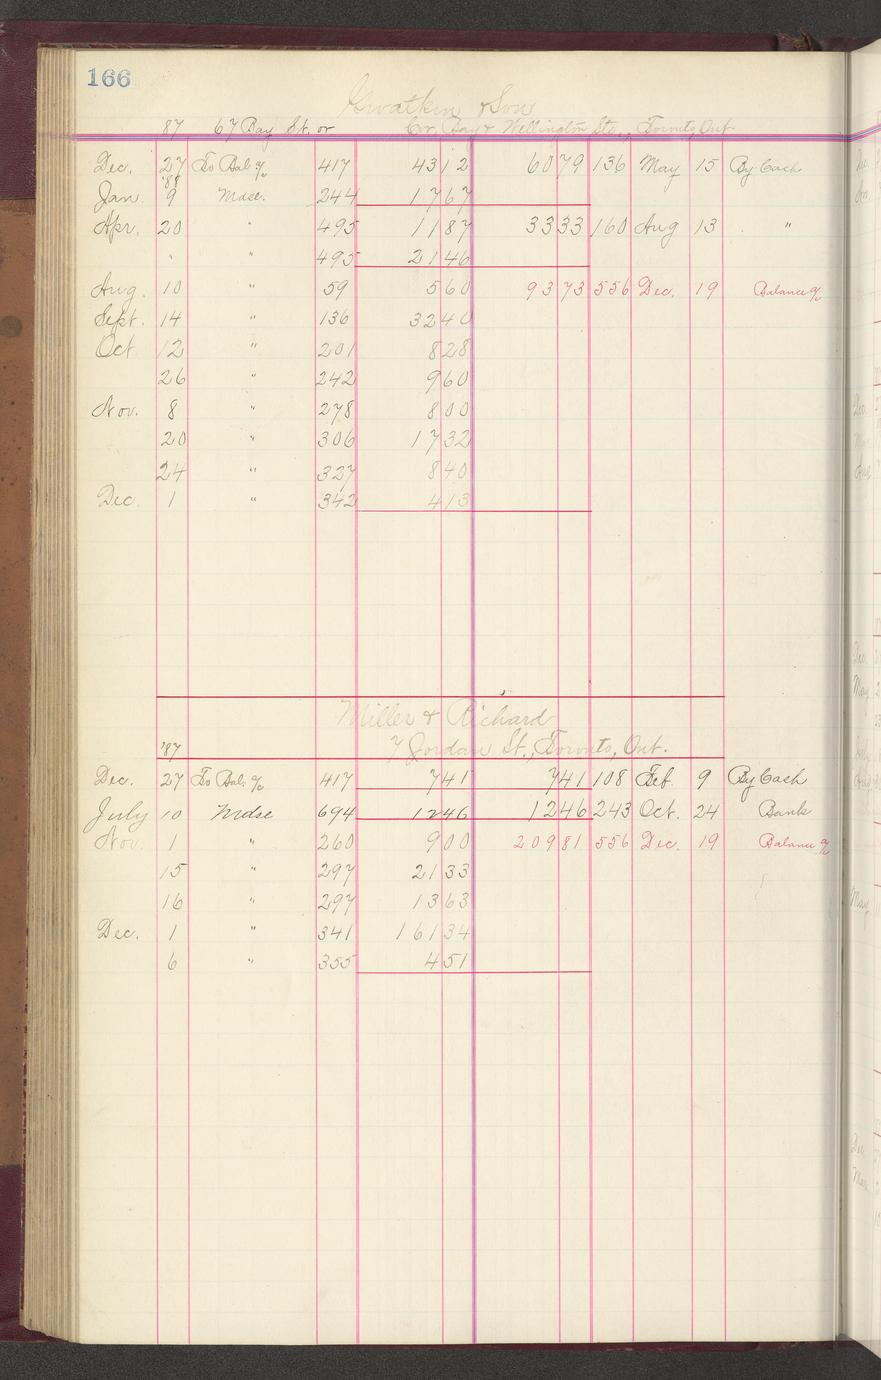 166
Gwatkin & Son
87 67 Bay St. or Cr. Bay & Wellington Sts., Toronto, Ont
Dec. 27 To Bal. % 417 43 12 60 79 136 May 15 By Cash
'88
Jan. 9 Mdse. 244 17 67
Apr. 20 " 495 11 87 33 33 160 Aug 13 "
" " 495 21 46
Aug. 10 " 59 5 60 93 73 556 Dec. 19 Balance %
Sept. 14 " 136 32 40
Oct 12 " 201 8 28
26 " 242 9 60
Nov. 8 " 278 8 00
20 " 306 17 32
24 " 327 8 40
Dec. 1 " 342 4 13
Miller & Richard
'87 7 Jordan St., Toronto, Ont.
Dec. 27 To Bal. % 417 7 41 7 41 108 Feb. 9 By Cash
July 10 Mdse 694 12 46 12 46 243 Oct. 24 Bank
Nov. 1 " 260 9 00 209 81 556 Dec. 19 Balance %
15 " 297 21 33
16 " 297 13 63
Dec. 1 " 341 161 34
6 " 355 4 51